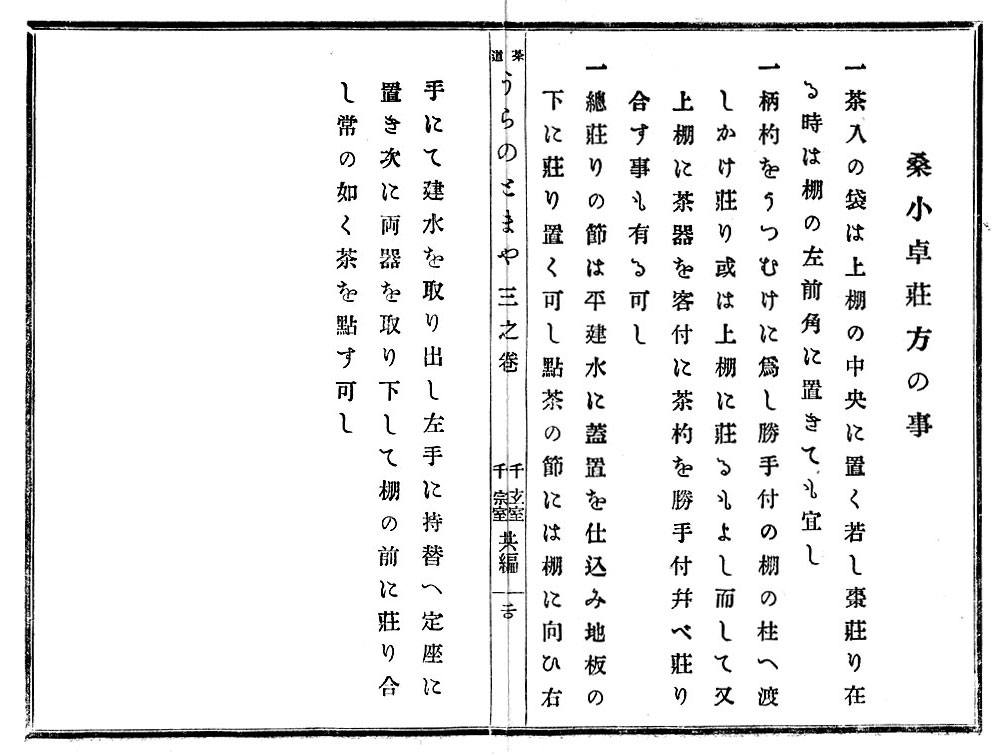 桑小卓莊方の事
一茶入の袋は上棚の中央に置く若し棗莊り在
る時は棚の左前角に置きても宜し
一柄杓をうつむけに爲し勝手付の棚の柱へ渡
しかけ莊り或は上棚に莊るもよし而して又
上棚に茶器を客付に茶杓を勝手付幷べ莊り
合す事も有る可し
一總莊りの節は平建水に蓋置を仕込み地板の
下に莊り置く可し點茶の節には棚に向ひ右
茶道
うらのとまや三之卷
千玄室
千宗室
共編
手にて建水を取り出し左手に持替へ定座に
置き次に両器を取り下して棚の前に莊り合
し常の如く茶を點す可し